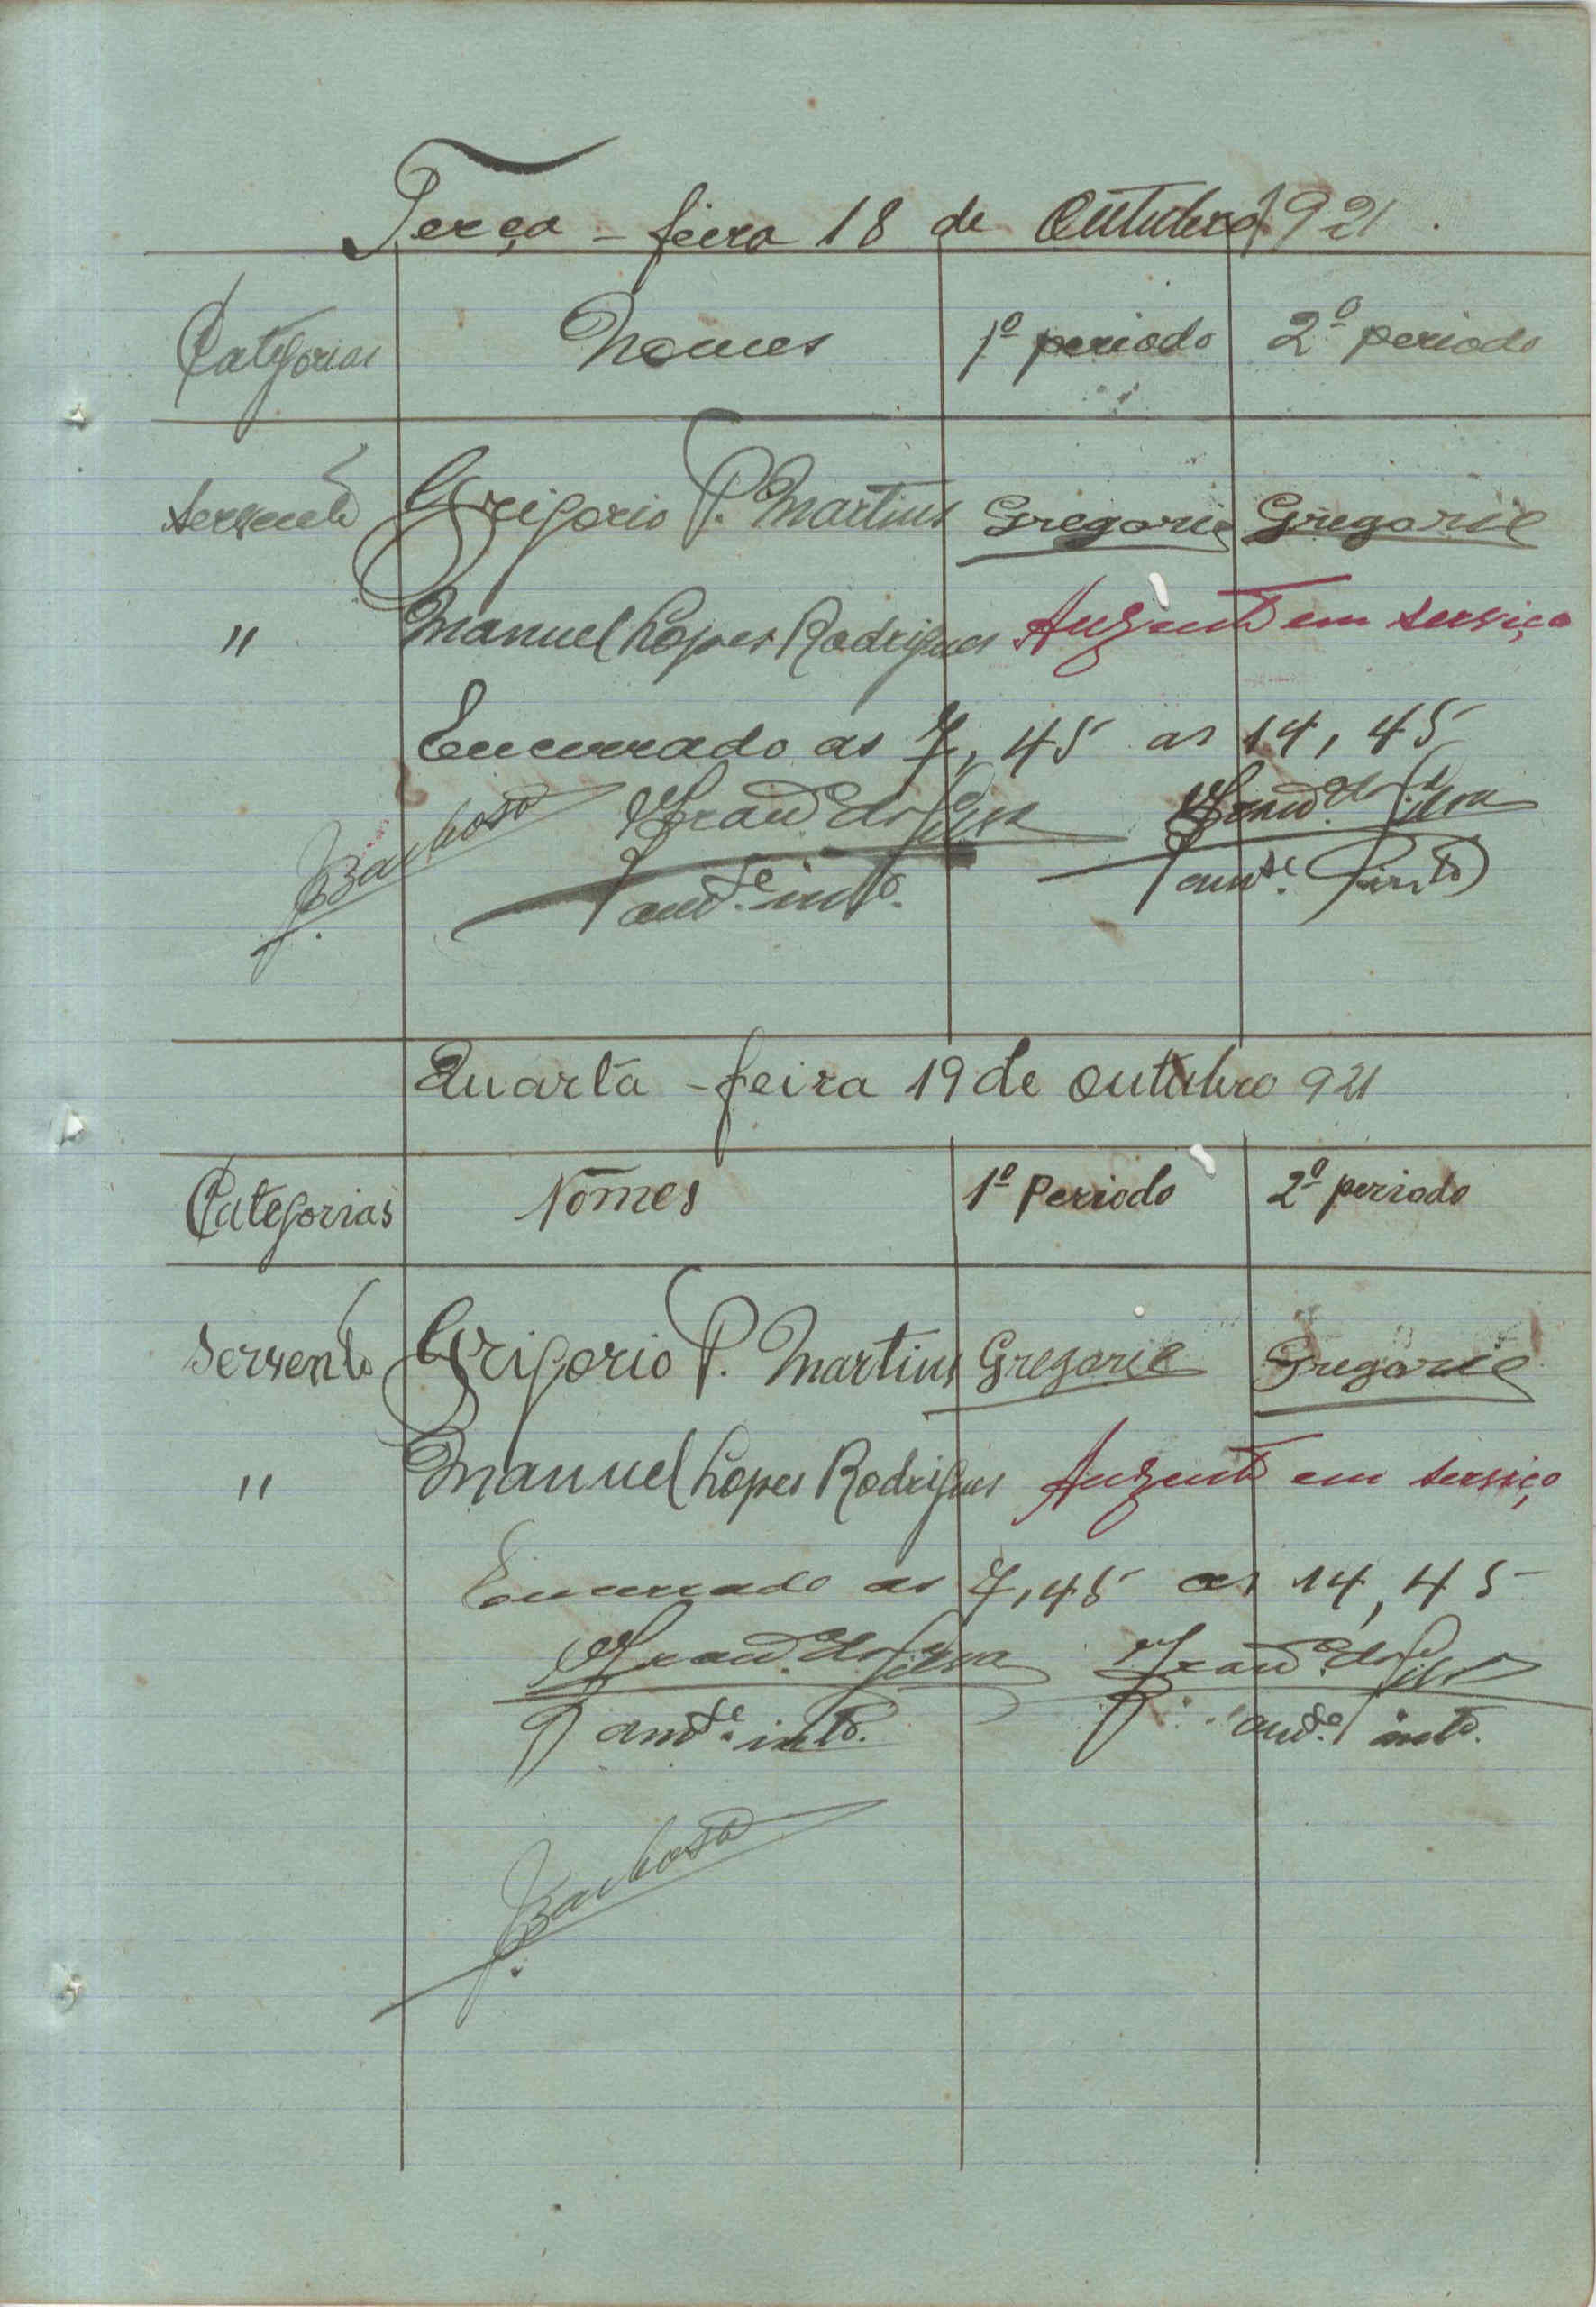 Terça - feira 18 de Outubro 1921
Categorias Nomes 1º periodo 2º periodo
Servente Grigorio P. Martins Gregorio Gregorio
" Manuel Lopes Rodrigues Auzente em serviço
Encerrado as 7,45 as 14,45
J. Barbosa da Silva da Silva
Quarta - feira 19 de Outubro 921
Categorias Nomes 1º Periodo 2º periodo
Servente Grigorio P. Martins Gregorio Gregorio
" Manuel Lopes Rodrigues Auzente em serviço
Encerrado as 7,45 as 14,45
da Silva da Silva
J. Barbosa